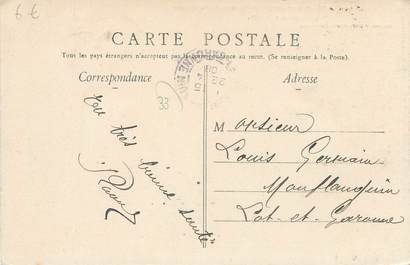 6 €
CARTE POSTALE
Tous les pays étrangers n'acceptent pas la correspondance au recto. (Se renseigner à la Poste).
Correspondance
Adresse
33
En très bonne santé
Monsieur
Louis Germain
Monflanquin
Lot-et-Garonne